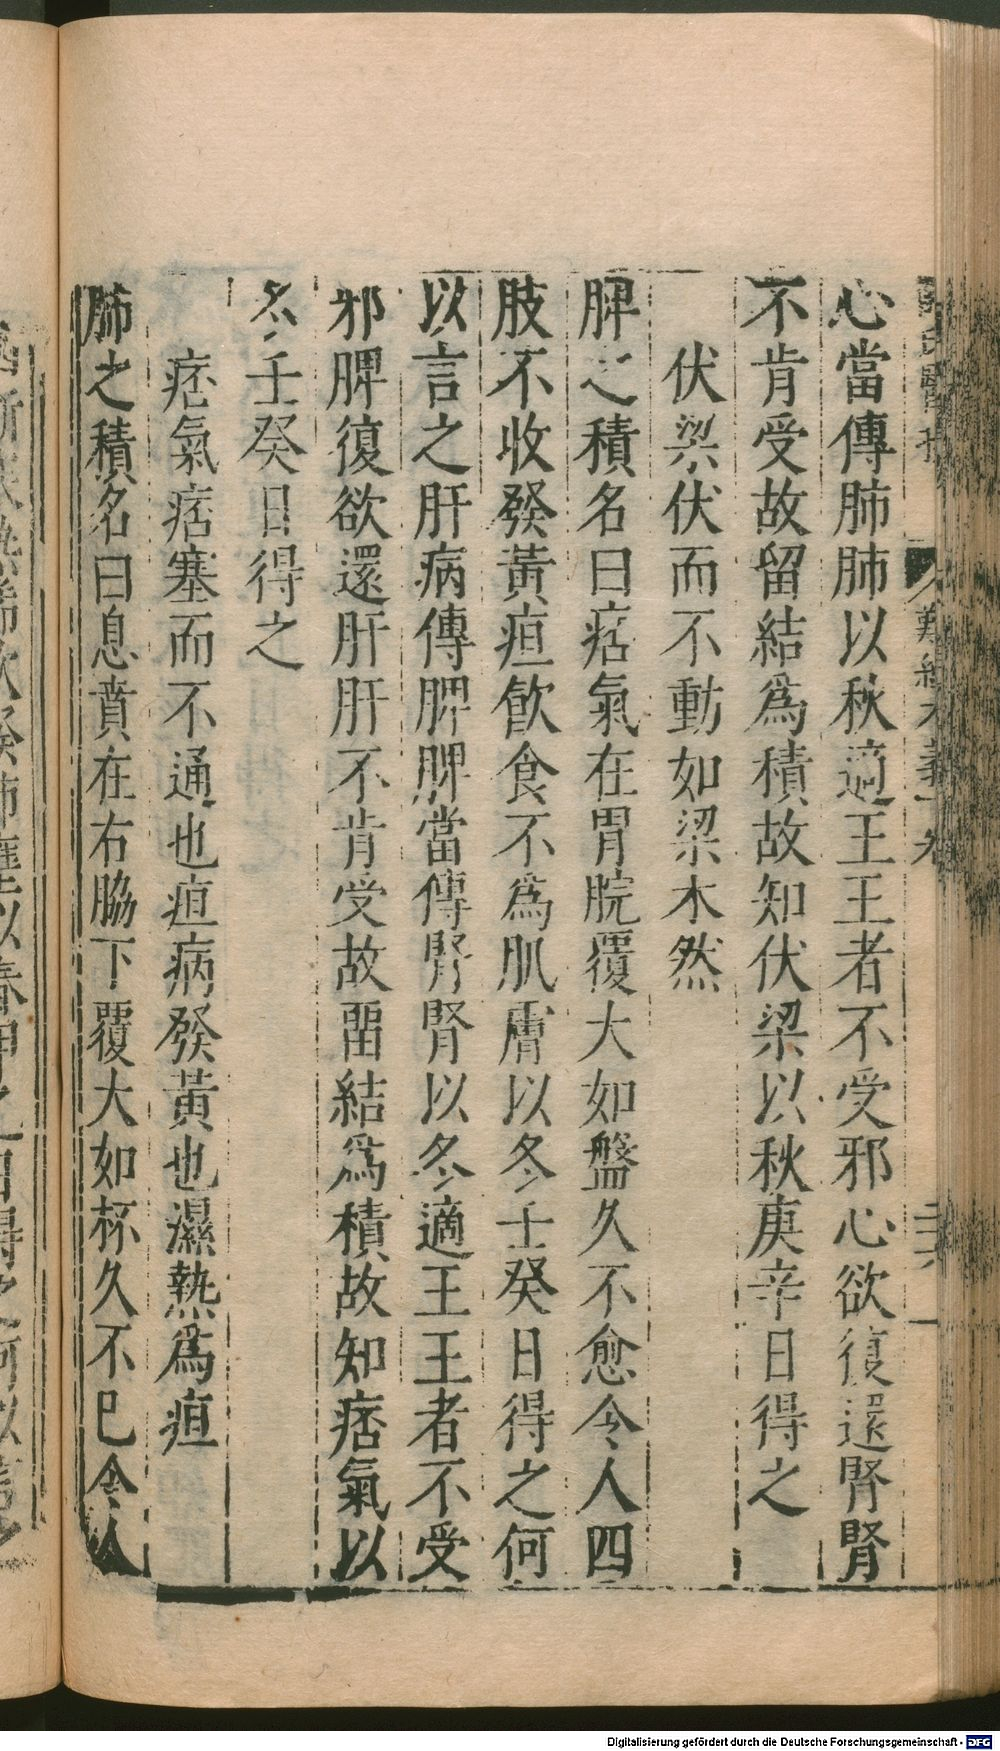 心當傳肺肺以秋適王王者不受邪心欲復還腎腎
不肯受故留結爲積故知伏梁以秋庚辛日得之
伏梁伏而不動如梁木然
脾之積名曰痞氣在胃脘覆大如盤久不愈令人四
肢不收發黃疸飲食不爲肌膚以冬壬癸日得之何
以言之肝病傳脾脾當傳腎腎以冬適王王者不受
邪脾復欲還肝肝不肯受故畱結爲積故知痞氣以
冬壬癸日得之
痞氣痞塞而不通也疸病發黃也濕熱爲疸
肺之積名曰息賁在右脇下覆大如杯久不已令人
Digitalisierung gefördert durch die Deutsche Forschungsgemeinschaft - DFG